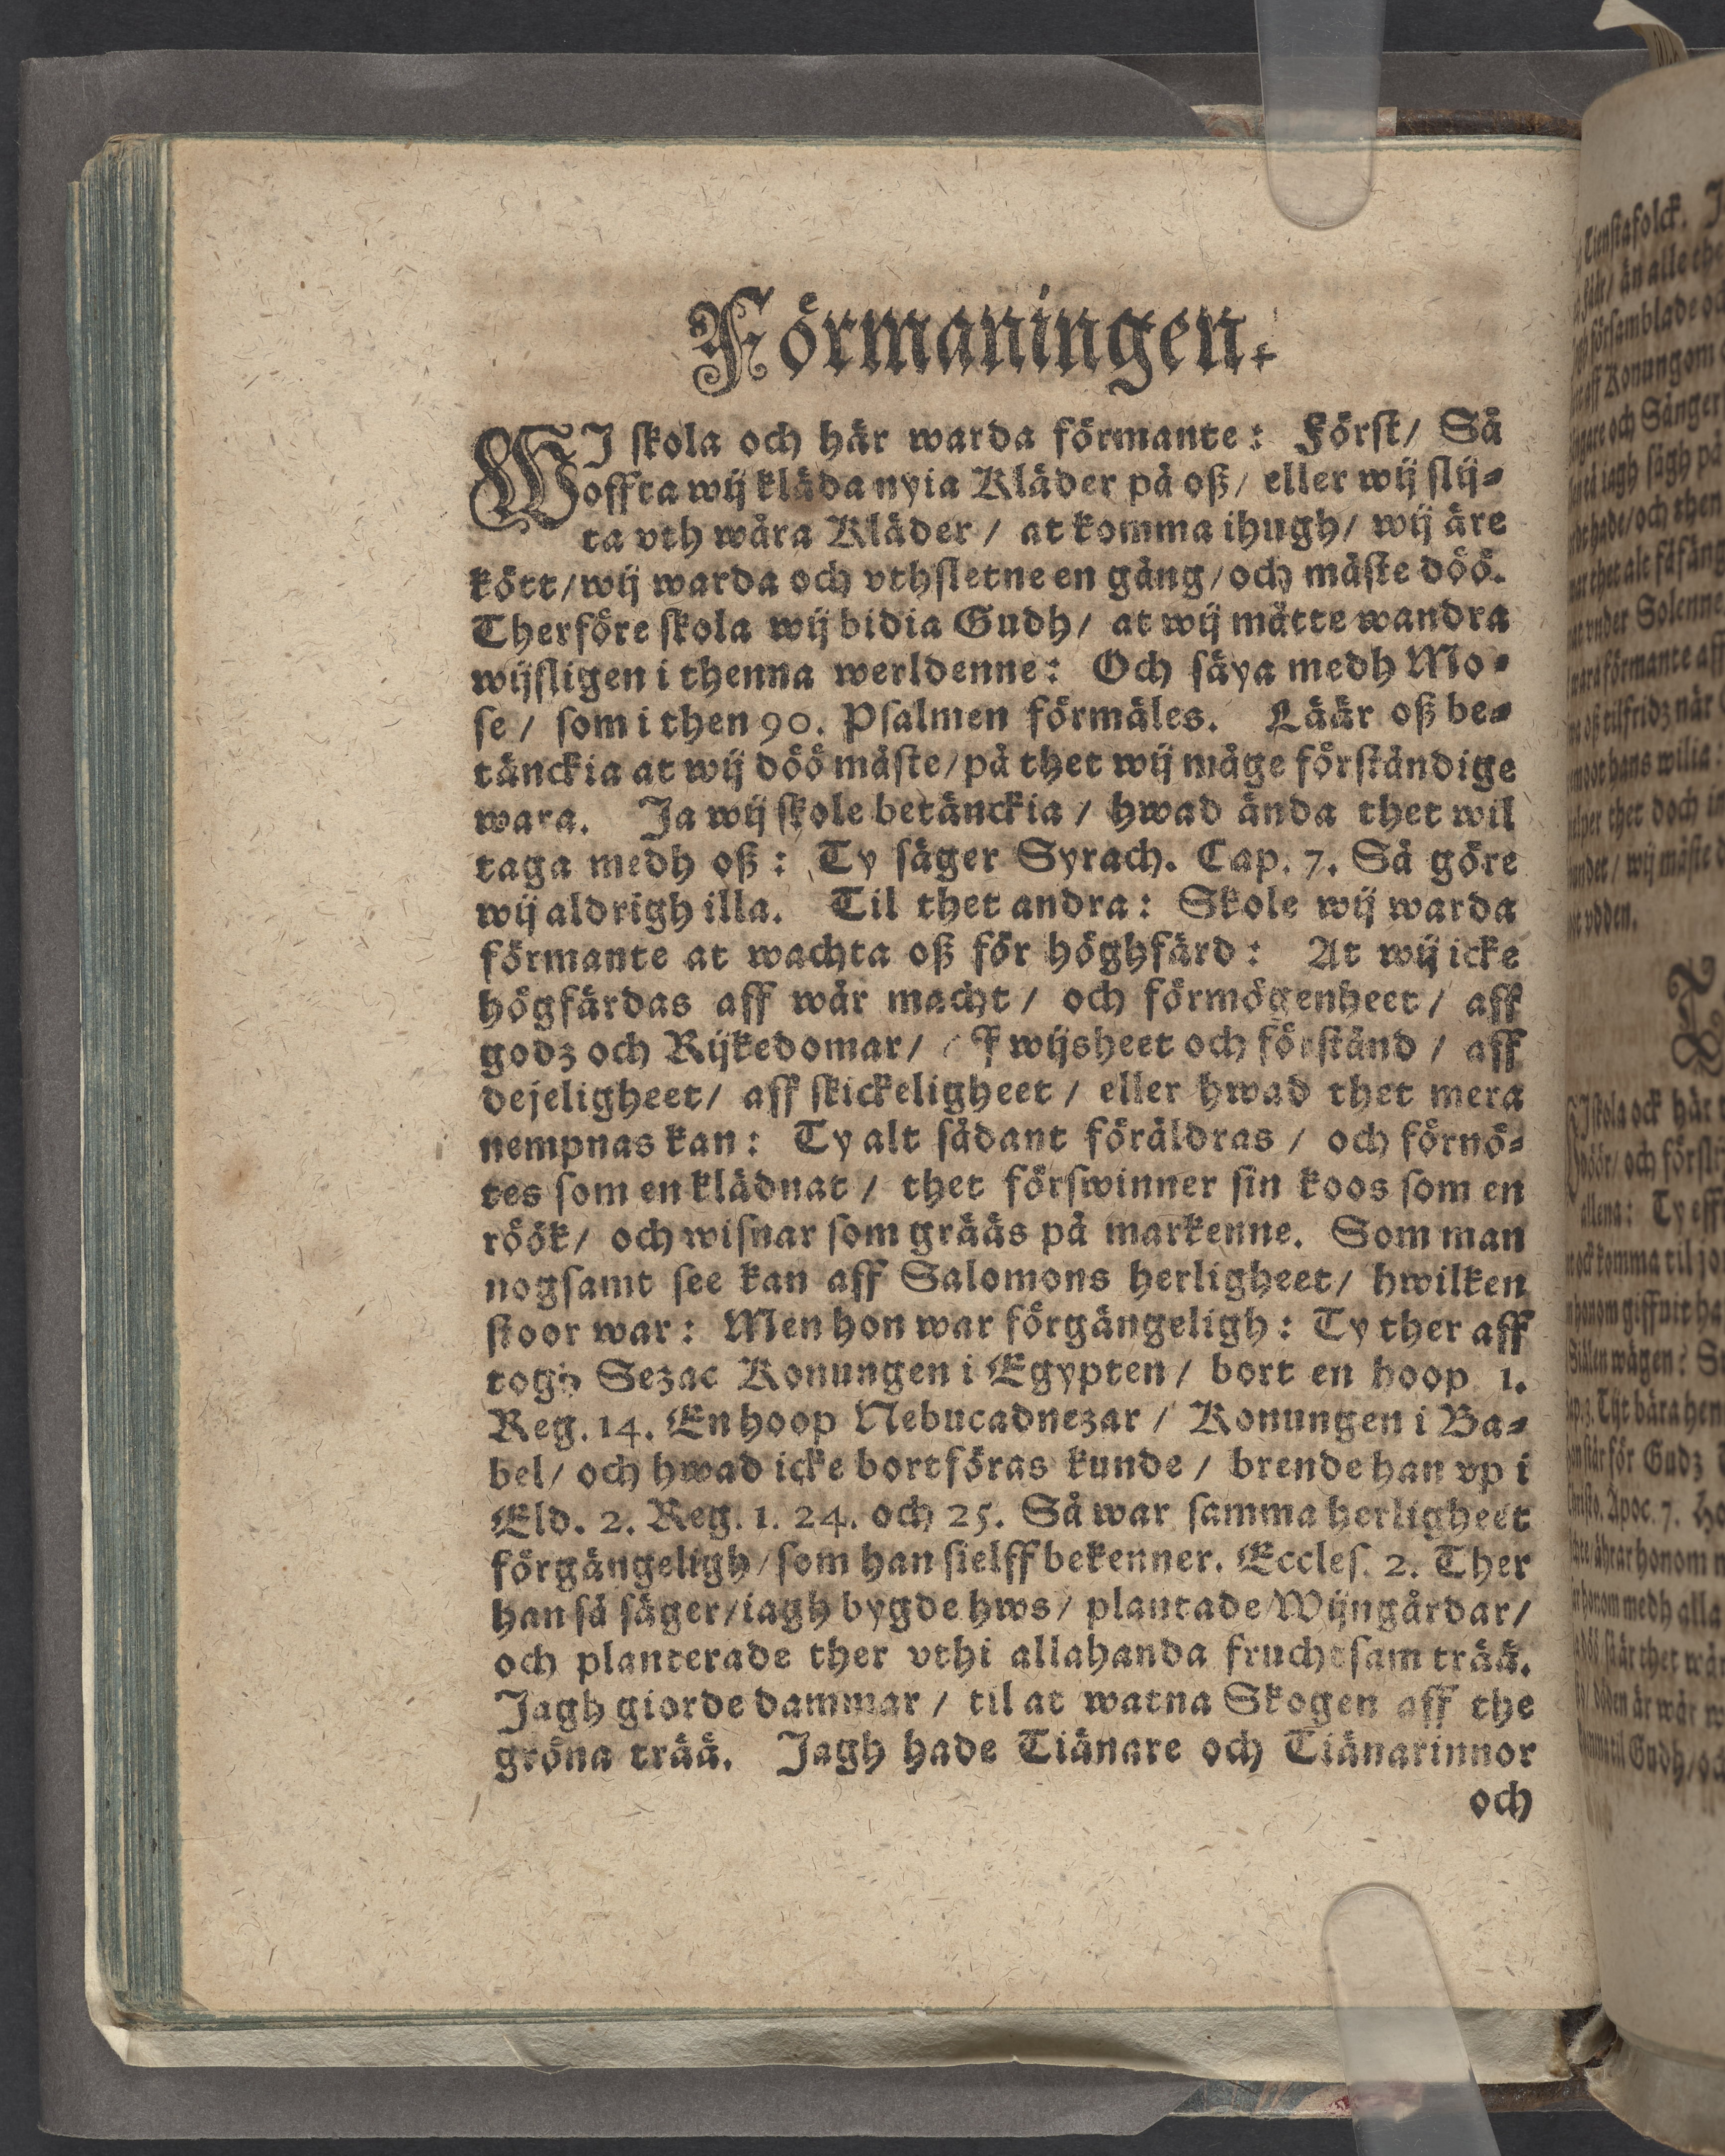 Förmaningen.
WJ skola och här warda förmante: Först/ Så
offta wij kläda nyia Kläder på oß/ eller wij slij-
ta vth wåra Kläder / at komma ihugh/ wij äre
kött/ wij warda och vthsletne en gång/ och måste döö.
Therföre skola wij bidia Gudh/ at wij måtte wandra
wijsligen i thenna werldenne: Och säya medh Mo-
se / som i then 90. Psalmen förmäles. Läär oß be-
tänckia at wij döö måste/ på thet wij måge förståndige
wara. Ja wij skole betänckia / hwad ända thet wil
taga medh oß: Ty säger Syrach. Cap. 7. Så göre
wij aldrigh illa. Til thet andra: Skole wij warda
förmante at wachta oß för höghfärd: At wij icke
högfärdas aff wår macht / och förmögenheet / aff
godz och Rijkedomar/ aff wijsheet och förstånd / aff
dejeligheet/ aff skickeligheet / eller hwad thet mera
nempnas kan: Ty alt sådant föräldras / och förnö-
tes som en klädnat / thet förswinner sin koos som en
röök/ och wisnar som grääs på markenne. Som man
nogsamt see kan aff Salomons herligheet/ hwilken
stoor war: Men hon war förgängeligh: Ty ther aff
togh Sezac Konungen i Egypten / bort en hoop 1.
Reg. 14. En hoop Nebucadnezar / Konungen i Ba-
bel/ och hwad icke bortföras kunde / brende han vp i
Eld. 2. Reg. 1. 24. och 25. Så war samma herligheet
förgängeligh/ som han sielff bekenner. Eccles. 2. Ther
han så säger/ iagh bygde hws / plantade Wijngårdar/
och planterade ther vthi allahanda fruchtsam trää.
Jagh giorde dammar / til at watna Skogen aff the
gröna trää. Jagh hade Tiänare och Tiänarinnor
och